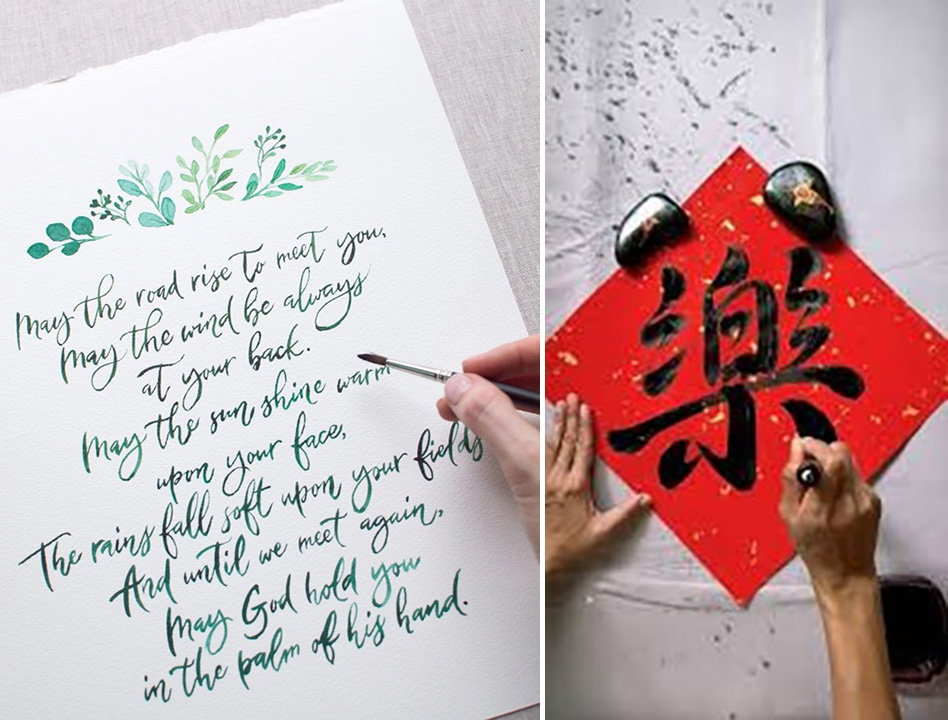 May the road rise to meet you,
May the wind be always
at your back.
May the sun shine warm
upon your face,
The rains fall soft upon your fields
And until we meet again,
May God hold you
in the palm of his hand.
樂